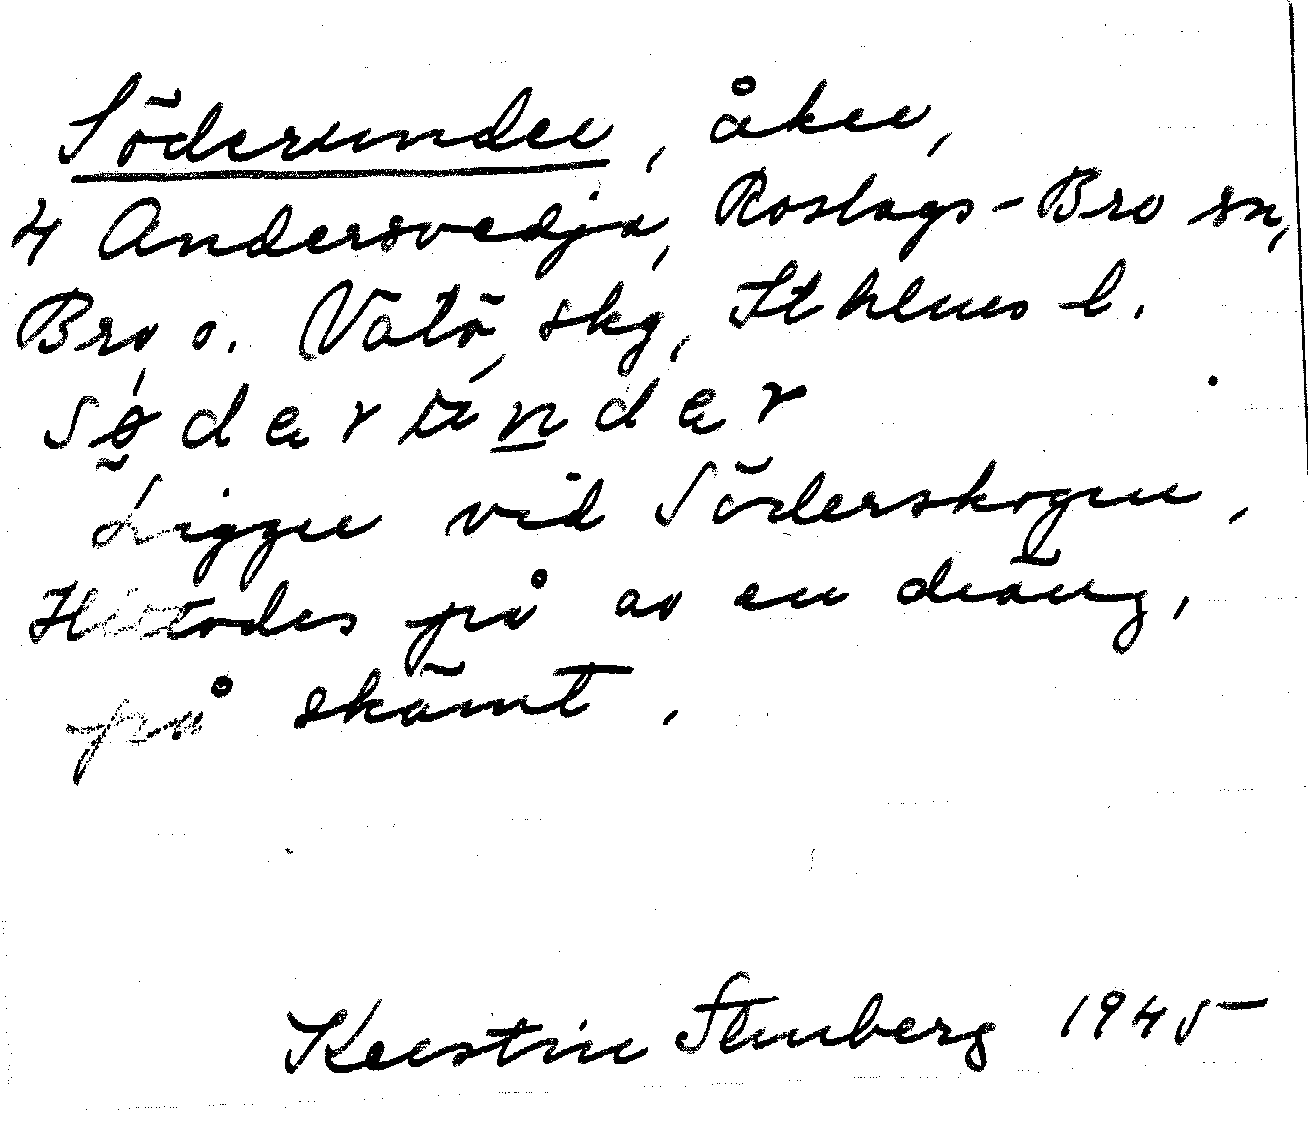 Söderunder, åker,
4 Andersvedja, Roslags-Bro sn,
Bro o. Vätö skg, Sthlms l.
sø̀dərùndər
Ligger vid Söderskogen.
Hittades på av en dräng,
på skämt.
Kerstin Stenberg 1945